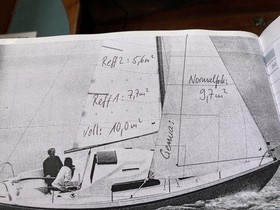 Reff 2: 5,6m²
Reff 1: 7,7m²
Voll: 10,0m²
Normalfok:
9,7m²
Genua: